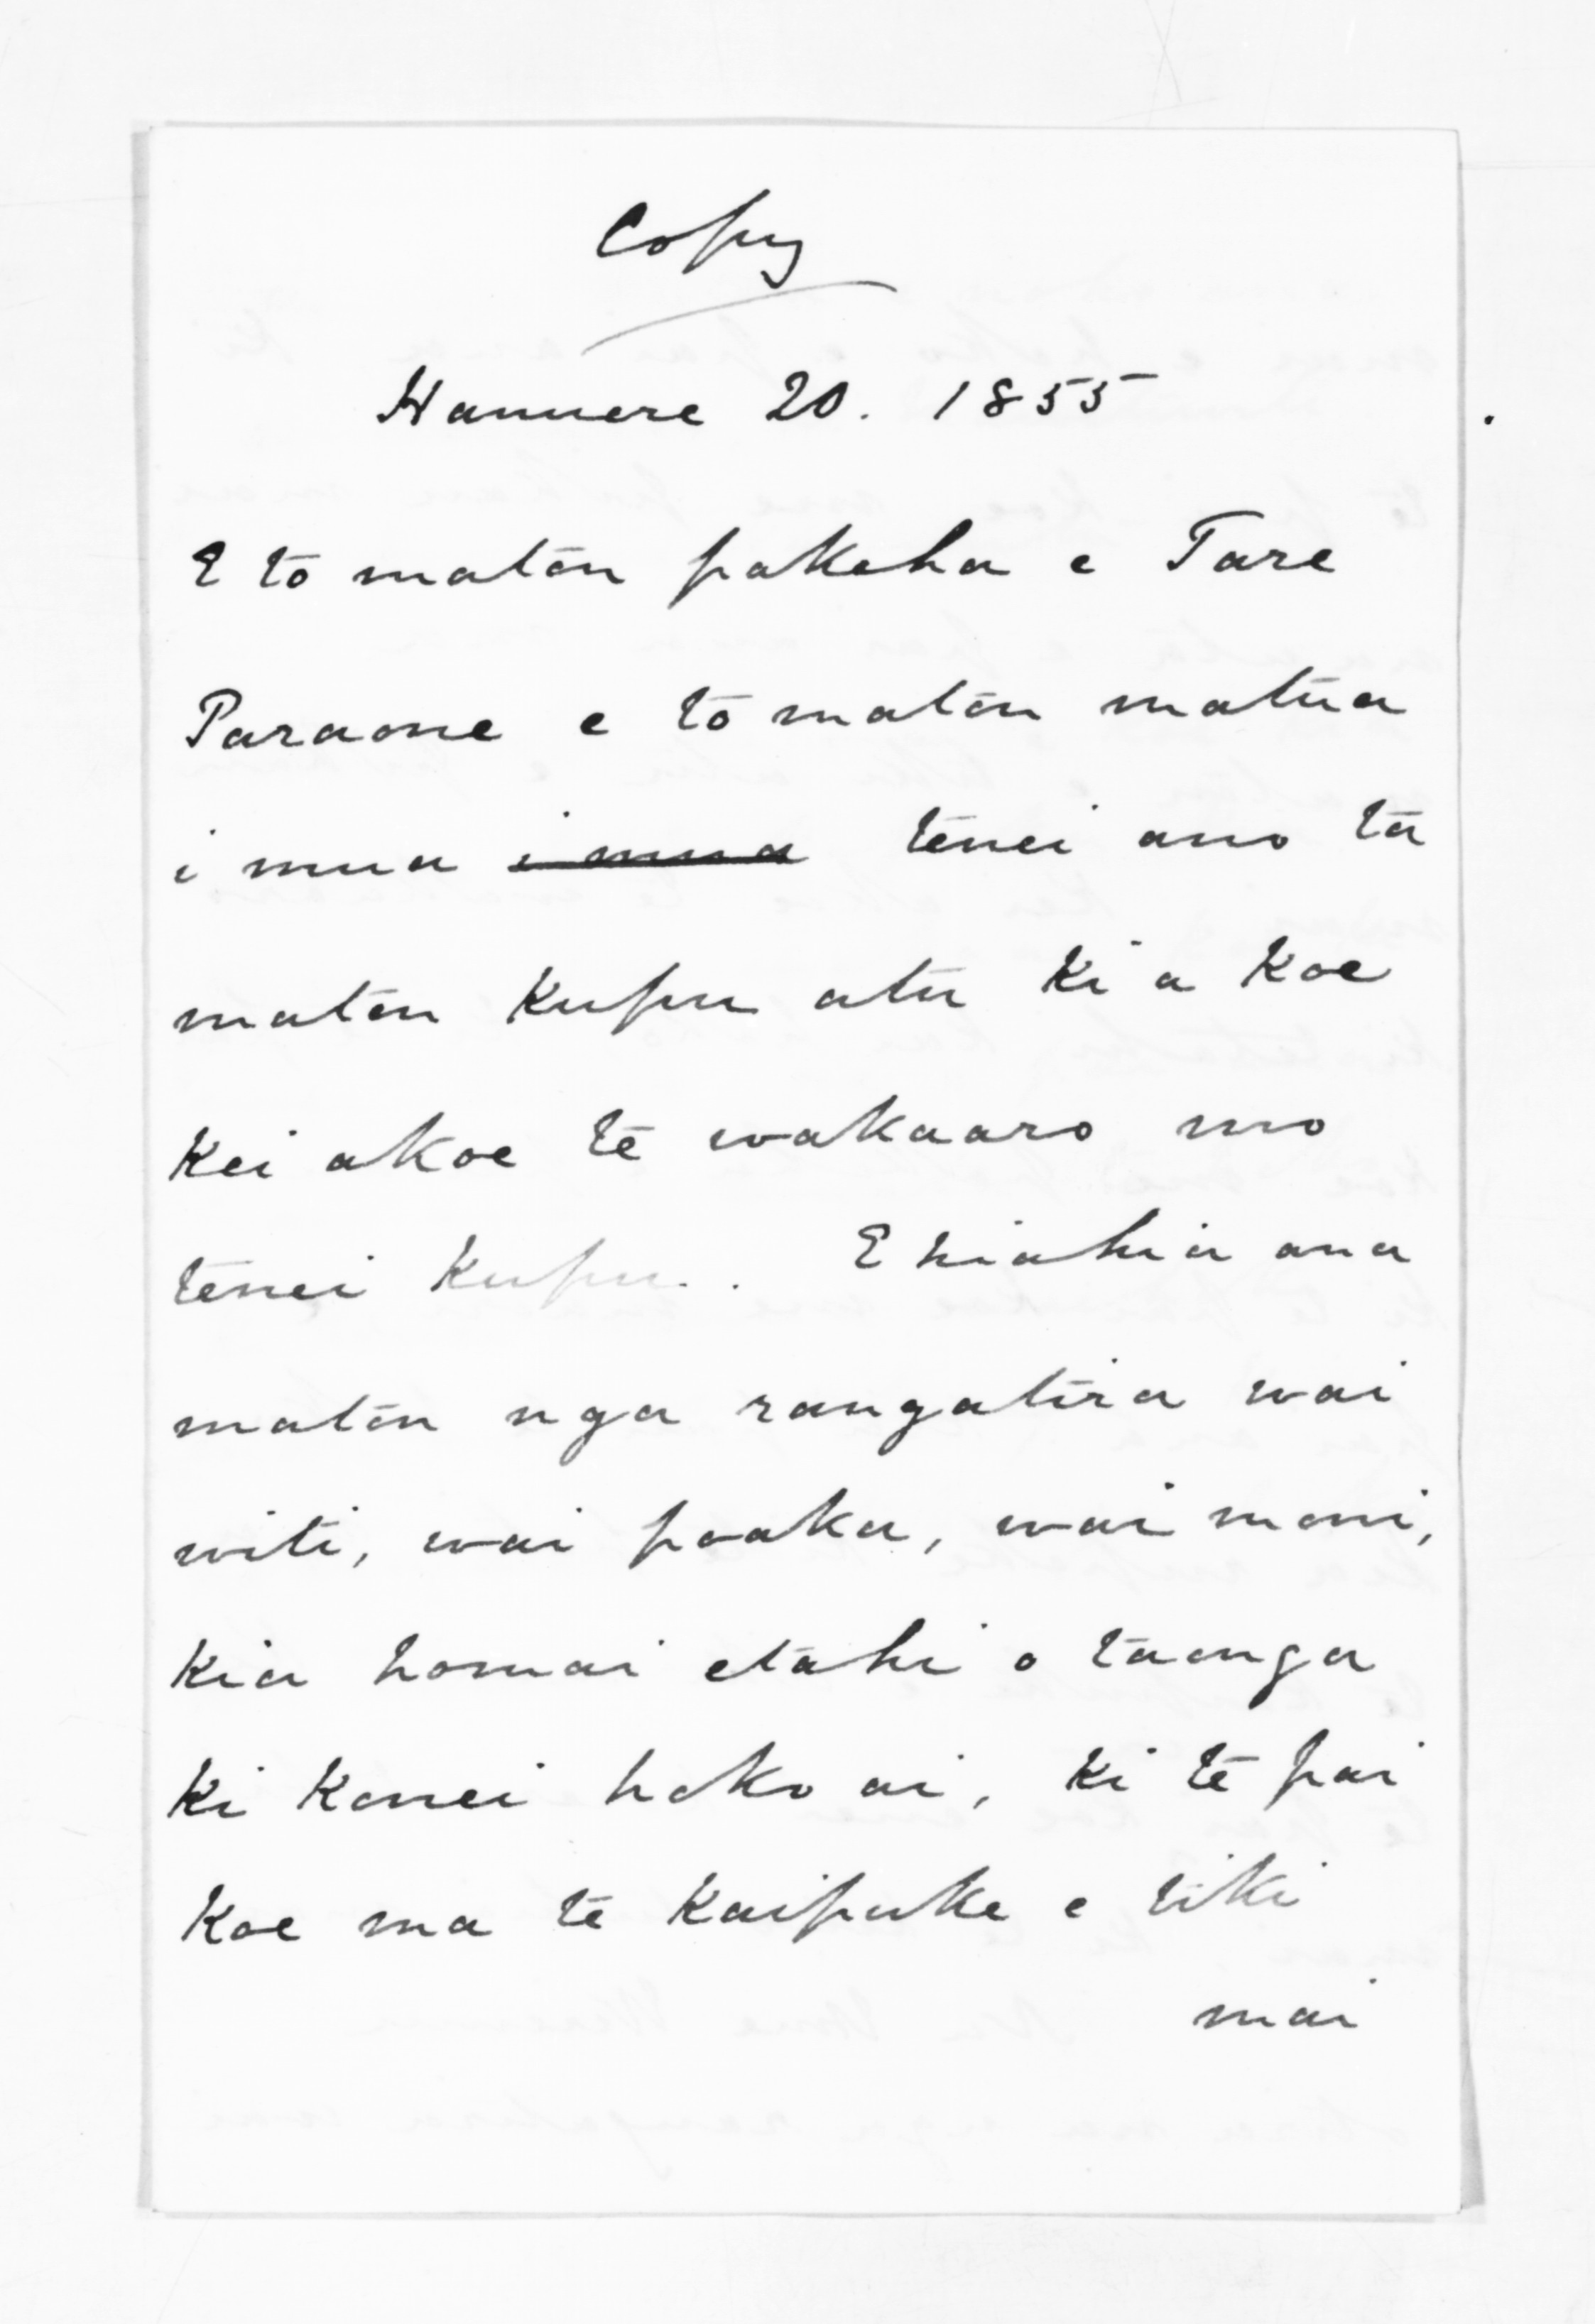 Copy
Hanuere 20. 1855
E to matou pakeha e Tare
Paraone e to matou matua
i mua i mua tenei ano ta
matou Kupu atu Ki a Koe
Kei a Koe te wakaaro mo
tenei Kupu.. E hiahia ana
matou nga rangatira wai
witi, wai poaka, wai moni,
Kia homai etahi o taonga
Ki Konei hoko ai, Ki te pai
Koe ma te Kaipuke e tiki
mai